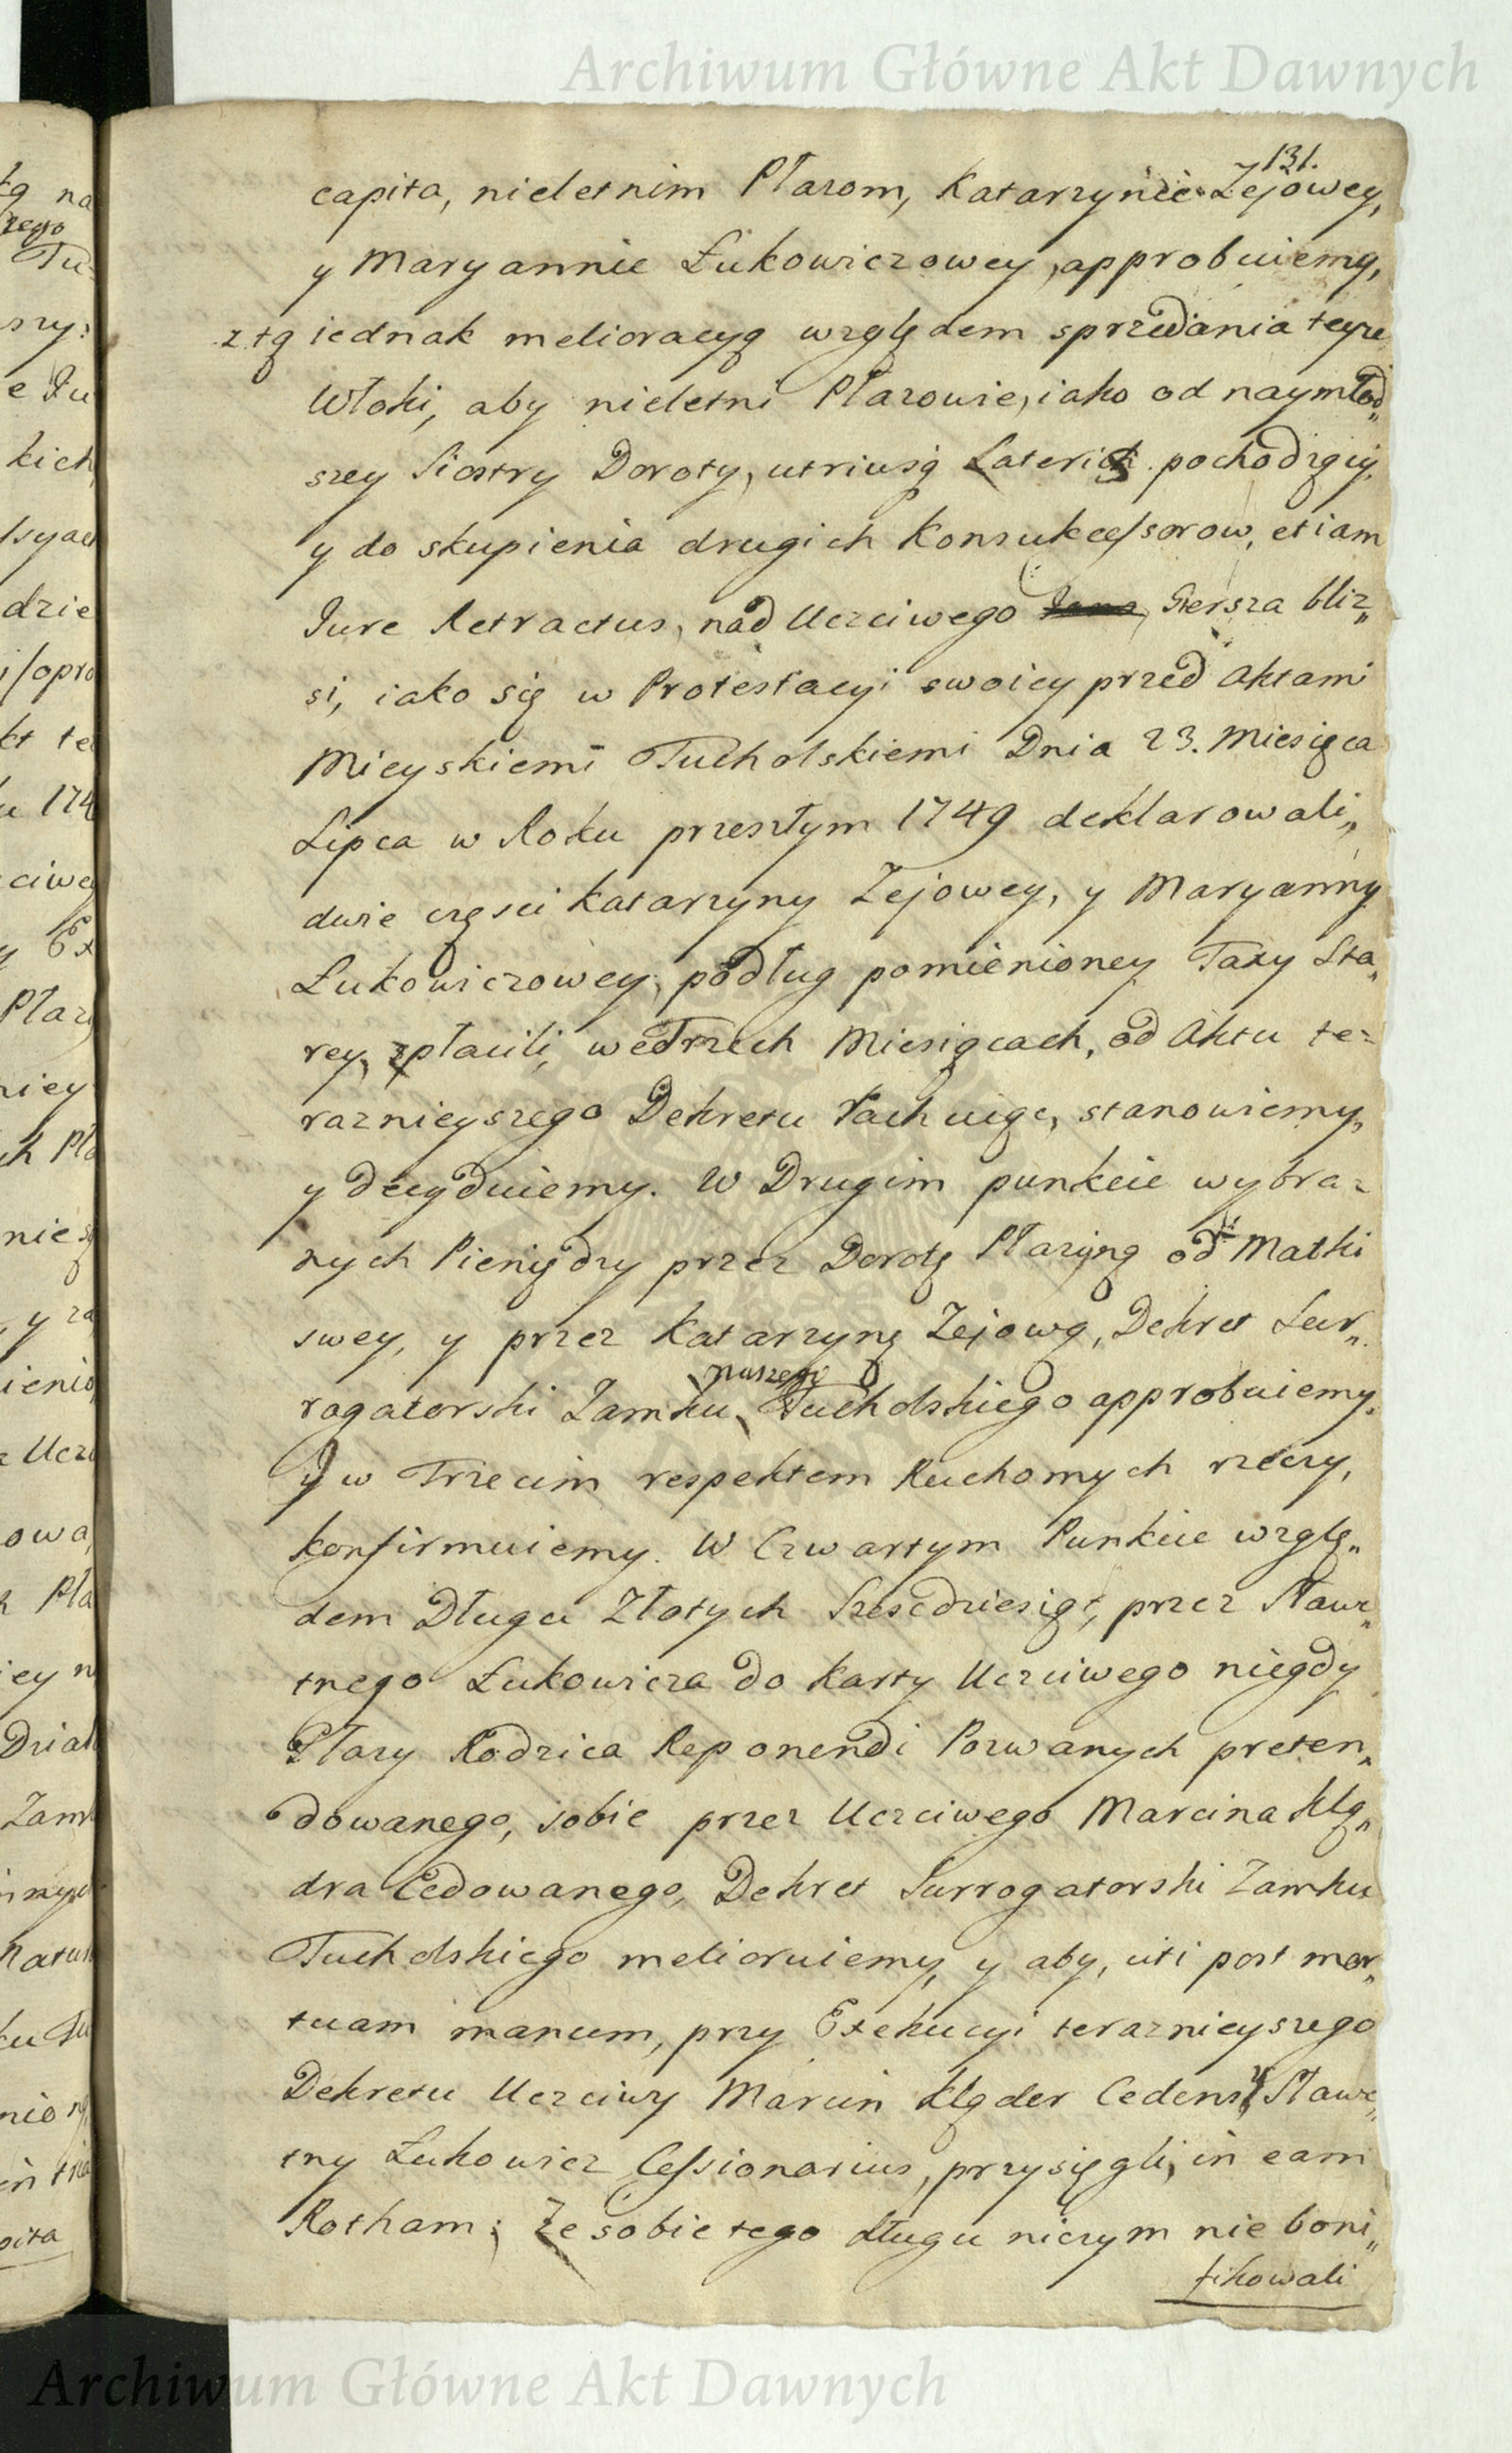 Archiwum Główne Akt Dawnych
131.
capita, nieletnim Płazom, Katarzynie Zejowey,
y Maryannie Łukowiczowey, approbuiemy,
z tą iednak melioracyą względem sprzedania teyże
Włoki, aby nieletni Płazowie, iako od naymłod„
szey Siostry Doroty, utriusq Lateris pochodzący,
y do skupienia drugich Konsukcessorow, etiam
Jure Retractus, nad Uczciwego Giersza bliz„
si, iako się w Protestacyi swoiey przed Aktami
Mieyskiemi Tucholskiemi Dnia 23. Miesięca
Lipca w Roku przeszłym 1749 deklarowali,
dwie części Katarzyny Zejowey, y Maryanny
Łukowiczowey, podług pomienioney Taxy Sta„
rey, spłacili, we Trzech Miesiącach, od Aktu te-
raznieyszego Dekretu rachuiąc, stanowiemy,
y decyduiemy. W Drugim punkcie wybra-
nych Pieniędzy przez Dorotę Płazyną od Matki
swey, y przez Katarzynę Zejową, Dekret Sur„
rogatorski Zamku naszego Tucholskiego approbuiemy.
Y w Trzecim respektem Ruchomych rzeczy,
konfirmuiemy. W Czwartym Punkcie wzglę„
dem Długu Złotych Sześćdziesiąt, przez Sławe„
tnego Łukowicza do Karty Uczciwego niegdy
Płazy Rodzica Reponendi Pozwanych preten„
dowanego, sobie przez Uczciwego Marcina Klą„
dra Cedowanego, Dekret Surrogatorski Zamku
Tucholskiego melioruiemy, y aby, uti post mor„
tuam manum, przy Exekucyi teraznieyszego
Dekretu Uczciwy Marcin Kląder Cedens y Sławe„
tny Łukowicz Cessionarius, przysięgli, in eam
Rotham: Ze sobie tego długu niczym nie boni„
fikowali
Archiwum Główne Akt Dawnych